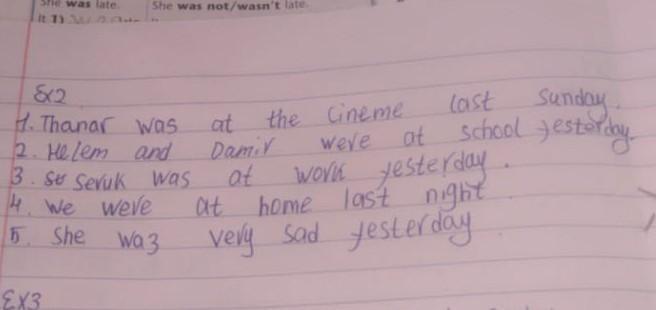 She was late. She was not/wasn't late.
Ex2
1. Thanar was at the cineme last Sunday.
2. Helem and Damir were at school yesterday.
3. Seruk was at work yesterday.
4. We were at home last night
5. She was very sad yesterday
Ex3